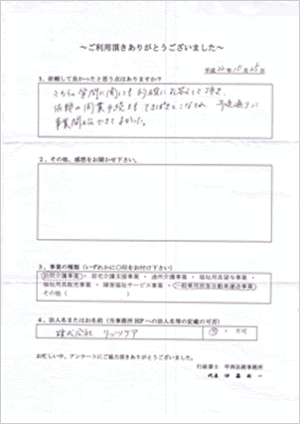 ～ご利用頂きありがとうございました～
平成22年10月25日
1、依頼して良かったと思う点はありますか?
こちらの質問に関しても的確にお答えして頂き、
依頼の開業手続きもてきぱきとこなされ、予定通りに
事業開始ができました。
2、その他、感想をお聞かせ下さい。
3、事業の種類（いずれかに○印をお付け下さい）
訪問介護事業・居宅介護支援事業・通所介護事業・福祉用具貸与事業・
福祉用具販売事業・障害福祉サービス事業・一般乗用旅客自動車運送事業
その他（ ）
4、法人名またはお名前（当事務所HPへの法人名等の記載の可否）
株式会社 リッツケア
可・不可
お忙しい中、アンケートにご協力頂きありがとうございました。
行政書士
法務事務所
代表